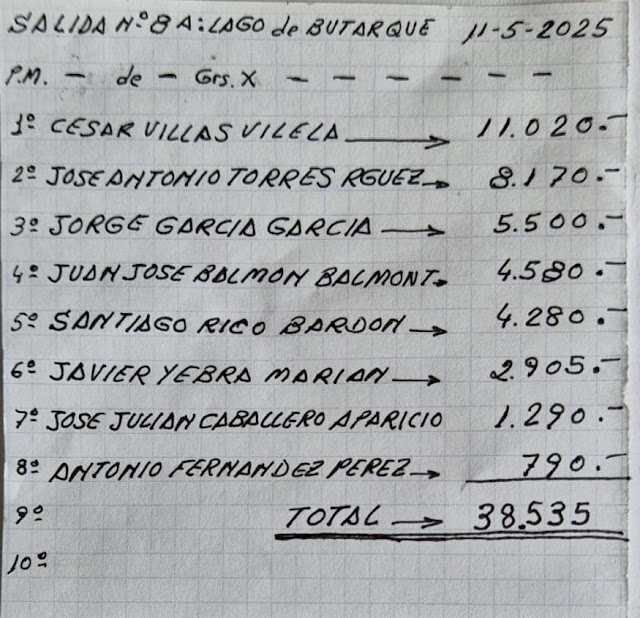 SALIDA Nº 8 A: LAGO de BUTARQUE 11-5-2025
P.M. - de - Grs. X - - - - - -
1º CESAR VILLAS VILELA → 11.020.-
2º JOSE ANTONIO TORRES RGUEZ → 8.170.-
3º JORGE GARCIA GARCIA → 5.500.-
4º JUAN JOSE BALMON BALMONT → 4.580.-
5º SANTIAGO RICO BARDON → 4.280.-
6º JAVIER YEBRA MARIAN → 2.905.-
7º JOSE JULIAN CABALLERO APARICIO 1.290.-
8º ANTONIO FERNANDEZ PEREZ → 790.-
9º TOTAL → 38.535
10º